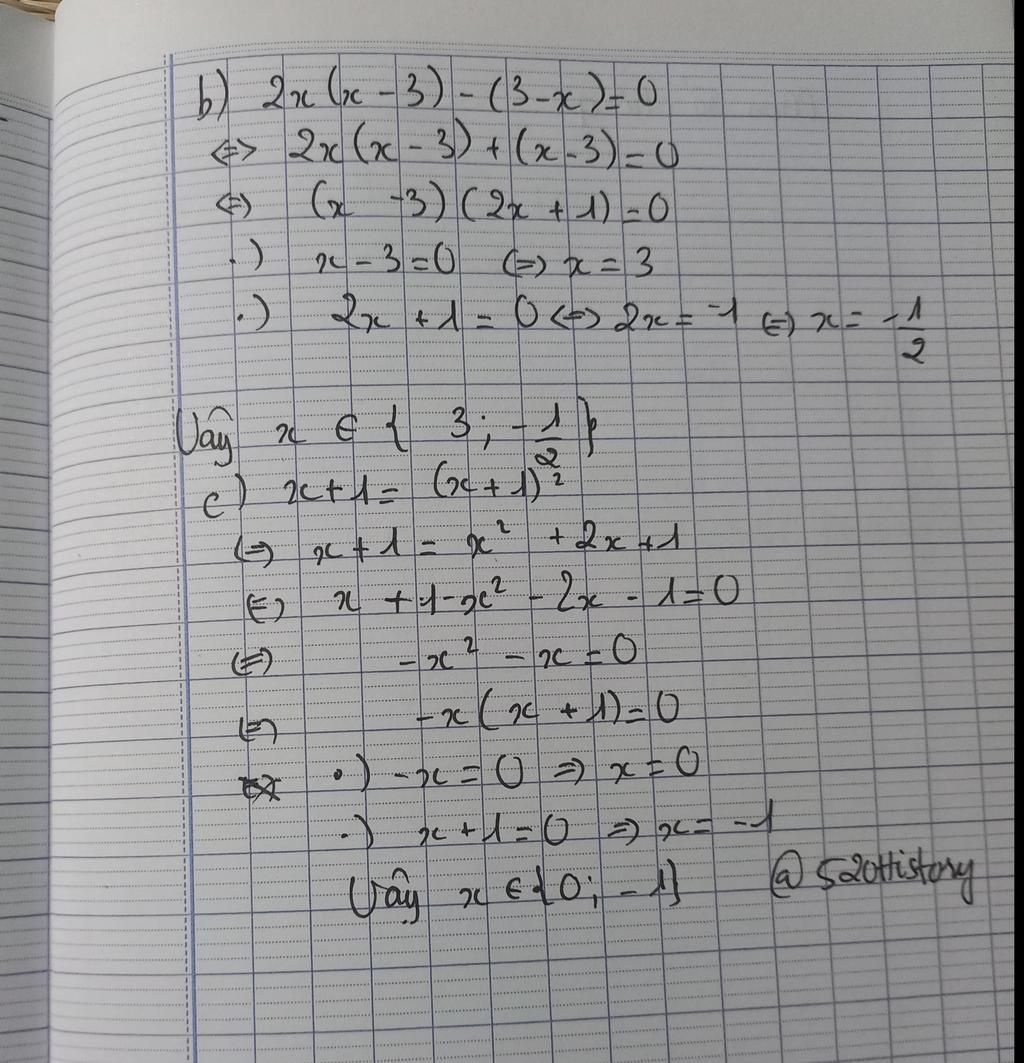 b) 2x(x - 3) - (3 - x) = 0
<=> 2x(x - 3) + (x - 3) = 0
<=> (x - 3)(2x + 1) = 0
.) x - 3 = 0 <=> x = 3
.) 2x + 1 = 0 <=> 2x = -1 <=> x = -1/2
Vậy x ∈ { 3 ; -1/2 }
c) x + 1 = (x + 1)²
<=> x + 1 = x² + 2x + 1
<=> x + 1 - x² - 2x - 1 = 0
<=> -x² - x = 0
<=> -x(x + 1) = 0
.) -x = 0 => x = 0
.) x + 1 = 0 => x = -1
Vậy x ∈ {0; -1}
@520History